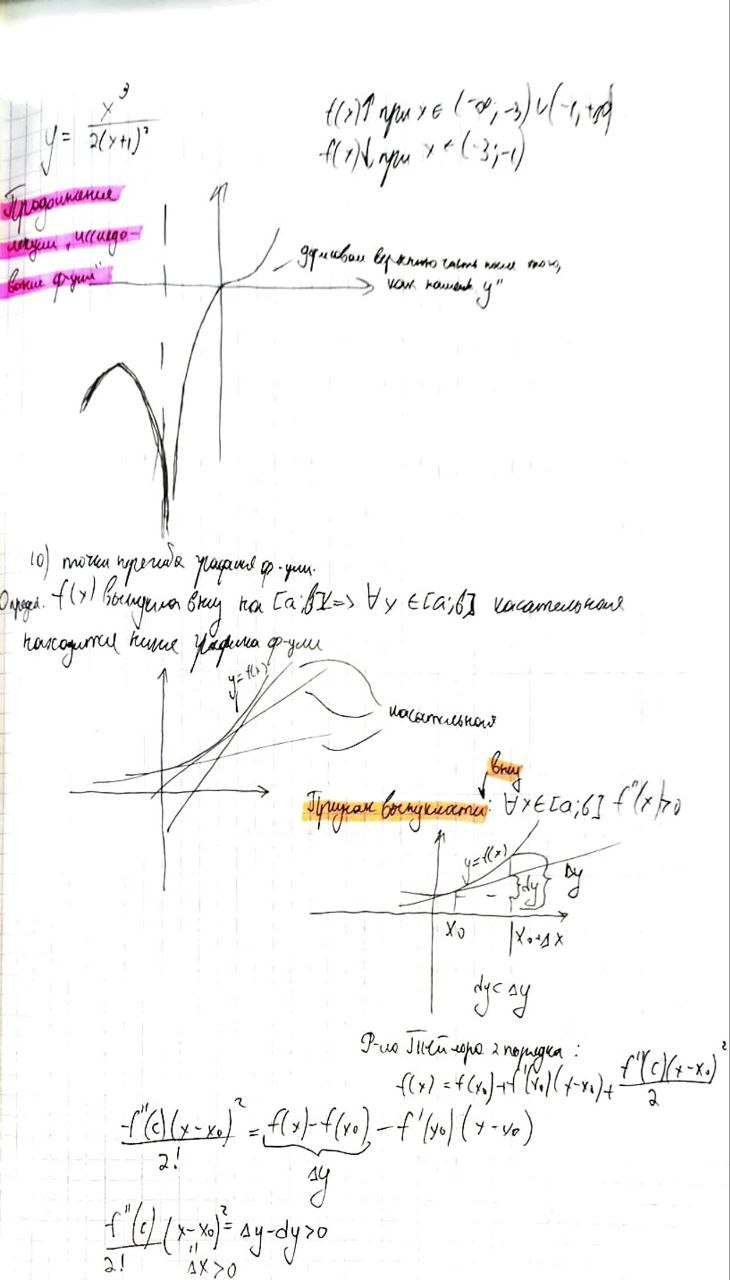 y = x³ / 2(x+1)²
f(x)↑ при x ∈ (-∞; -3) ∪ (-1, +∞)
f(x)↓ при x ∈ (-3; -1)
Продолжение
лекции „исследо-
вание ф-ции"
верхнюю часть после того,
как нашли y"
10) точки перегиба графика ф-ции.
Опред. f(x) выпукла вниз на [a;b] <=> ∀ x ∈ [a;b] касательная
находится ниже графика ф-ции
y=f(x)
касательная
вниз
Признак выпуклости: ∀ x ∈ [a;b] f''(x)>0
y=f(x)
dy
Δy
x₀
x₀+Δx
dy<Δy
Ф-ла Тейлора 2 порядка:
f(x) = f(x₀)+f'(x₀)(x-x₀)+ f''(c)(x-x₀)² / 2
f''(c)(x-x₀)² / 2! = f(x)-f(x₀) - f'(x₀)(x-x₀)
Δy
f''(c) / 2! (x-x₀)² = Δy-dy>0
Δx>0